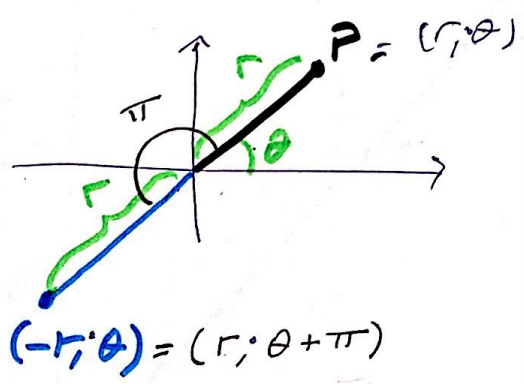 P = (r; θ)
r
π
θ
r
(-r; θ) = (r; θ + π)